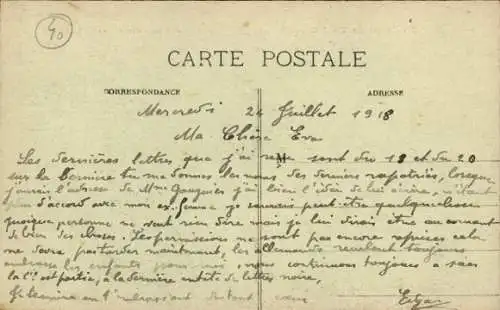 40
CARTE POSTALE
CORRESPONDANCE
ADRESSE
Mercredi 24 Juillet 1918
Ma Chère Eva
Les dernières lettres que j'ai sont du 18 et du 20
sur la dernière tu me donnes les noms des derniers rapatriés, lorsque
j'aurais l'adresse de Mme j'ai bien l'idée de lui écrire,
plus d'accord avec moi je saurais peut être quelque chose
quoique personne ne veut rien dire mais je lui dirai être au courant
de bien des choses. Les permissions ne sont pas encore cela
ne devra pas tarder maintenant, les allemands reculent toujours
embrasse les enfants pour moi, nous continuons toujours a
la Cie est partie, a la dernière de lettres noire,
Je termine en t'embrassant de tout cœur
Edgar